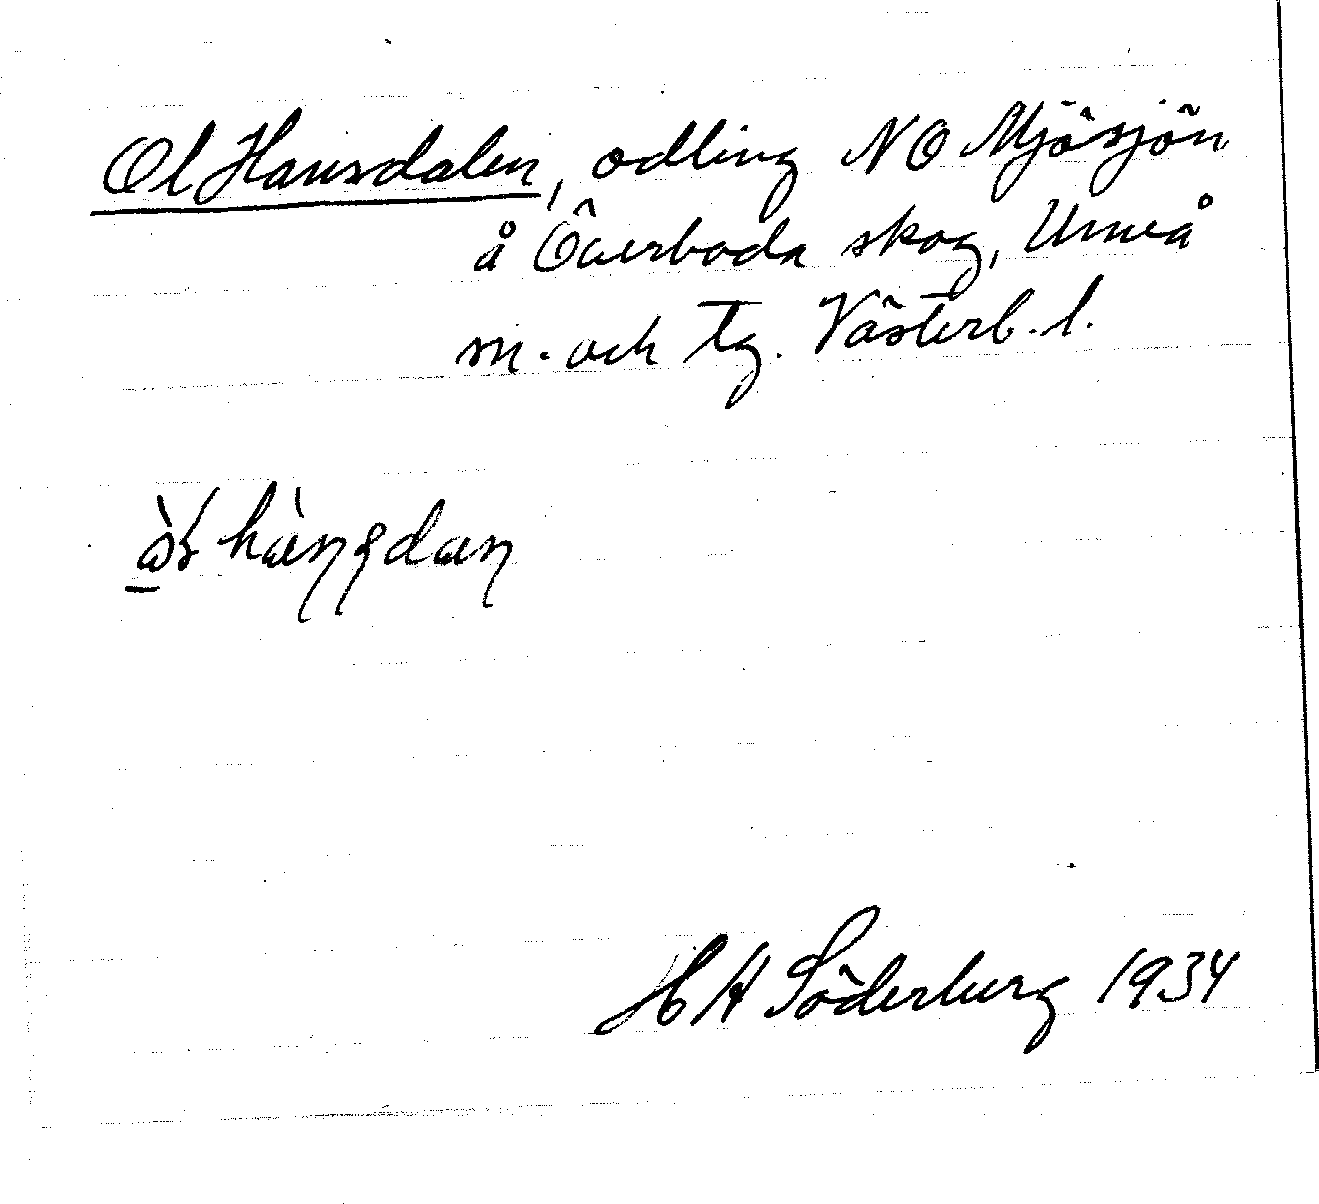 Ol Hansdalen, odling NO Mjösjön
å Överboda skog, Umeå
m. och tg. Västerb. l.
H H Söderberg 1934